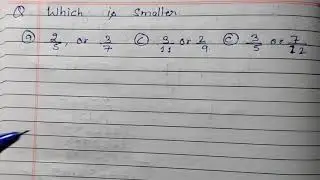 Q Which is smaller
a 2/5, or 3/7 c 3/11 or 2/9 e 3/5 or 7/12